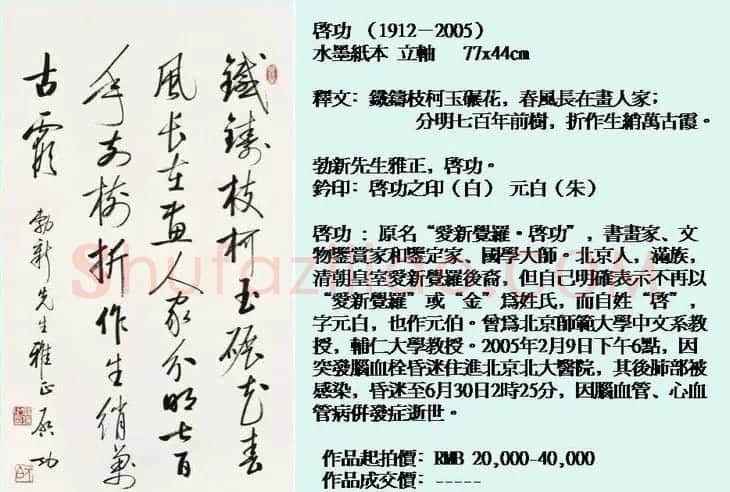 鐵鑄枝柯玉碾花春
風長在畫人家分明七百
年前樹折作生綃萬
古霞
勃新先生雅正 啓功
啓功 （1912－2005）
水墨紙本 立軸 77x44cm
釋文：鐵鑄枝柯玉碾花，春風長在畫人家；
分明七百年前樹，折作生綃萬古霞。
勃新先生雅正，啓功。
鈐印：啓功之印（白） 元白（朱）
啓功 ：原名“愛新覺羅·啓功”，書畫家、文
物鑒賞家和鑒定家、國學大師。北京人，滿族，
清朝皇室愛新覺羅後裔，但自己明確表示不再以
“愛新覺羅”或“金”爲姓氏，而自姓“啓”，
字元白，也作元伯。曾爲北京師範大學中文系教
授，輔仁大學教授。2005年2月9日下午6點，因
突發腦血栓昏迷住進北京北大醫院，其後肺部被
感染，昏迷至6月30日2時25分，因腦血管、心血
管病併發症逝世。
作品起拍價：RMB 20,000-40,000
作品成交價：-----